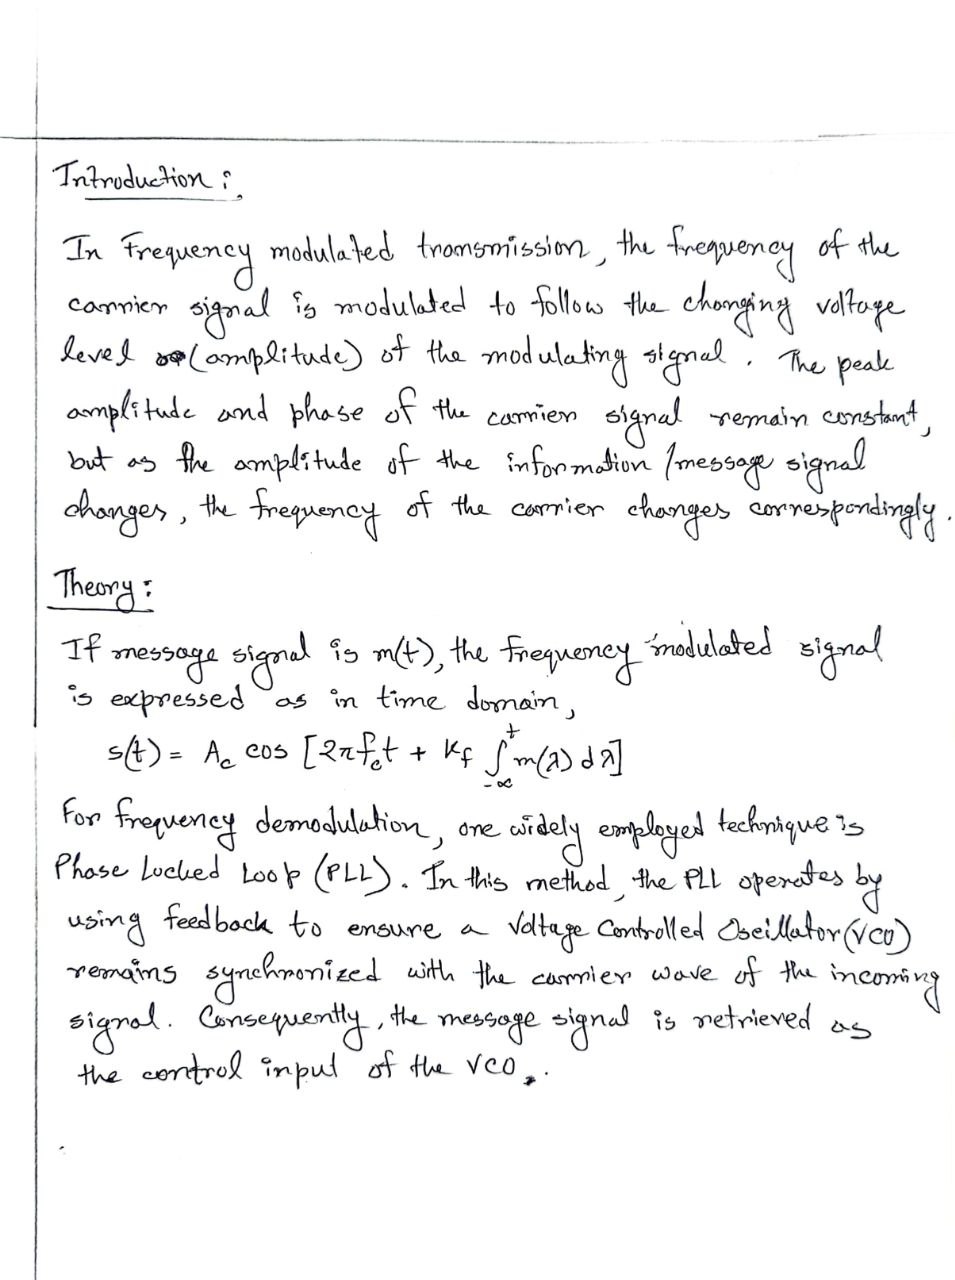 Introduction :
In Frequency modulated transmission, the frequency of the
carrier signal is modulated to follow the changing voltage
level (amplitude) of the modulating signal. The peak
amplitude and phase of the carrier signal remain constant,
but as the amplitude of the information /message signal
changes, the frequency of the carrier changes correspondingly.
Theory :
If message signal is m(t), the frequency modulated signal
is expressed as in time domain,
s(t) = A_c cos [2πf_c t + k_f ∫_{-∞}^{t} m(λ) dλ]
For frequency demodulation, one widely employed technique is
Phase Locked Loop (PLL). In this method, the PLL operates by
using feedback to ensure a Voltage Controlled Oscillator (VCO)
remains synchronized with the carrier wave of the incoming
signal. Consequently, the message signal is retrieved as
the control input of the VCO.